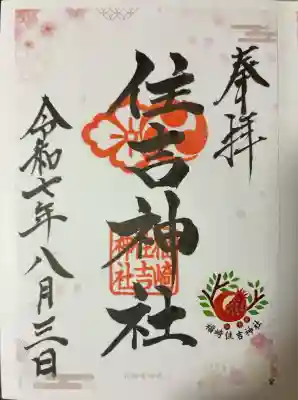 奉拝
住吉神社
福崎住吉神社
令和七年八月三日
福崎住吉神社